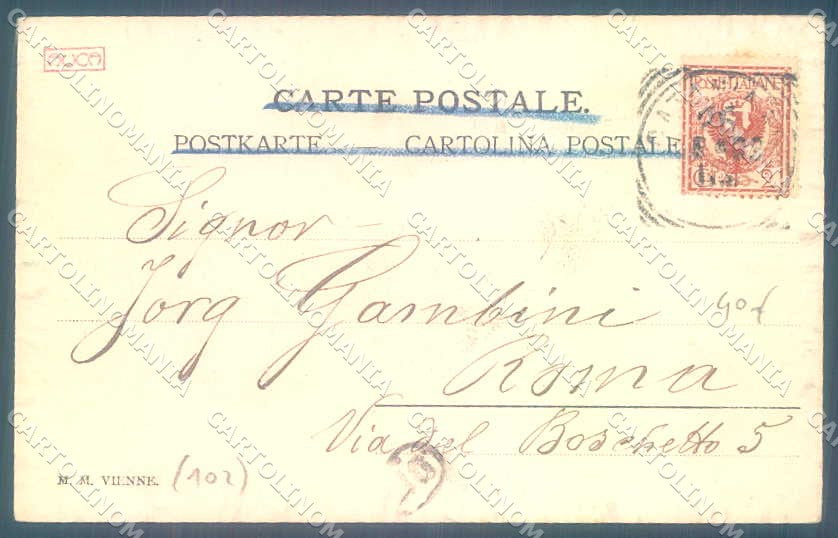 CARTE POSTALE.
POSTKARTE — CARTOLINA POSTALE
POSTE ITALIANE
Signor
Jörg Gambini
Roma
Via del Boschetto 5
M. M. VIENNE. (102)
CARTOLINOMANIA